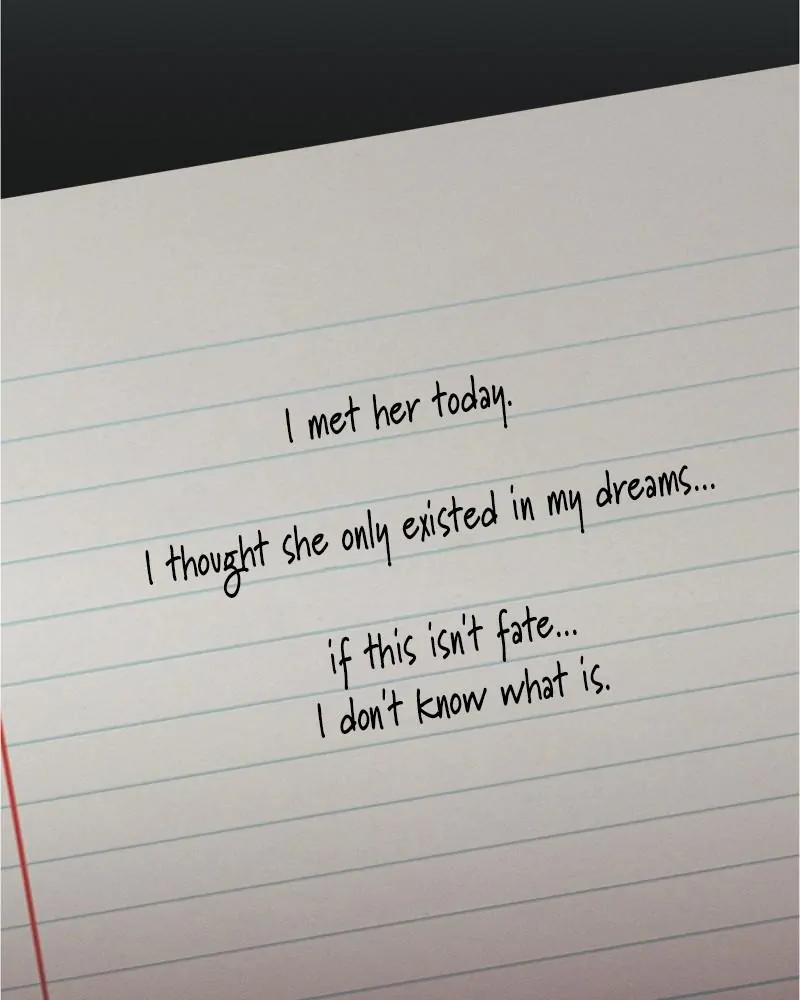 I met her today.
I thought she only existed in my dreams...
if this isn't fate...
I don't know what is.